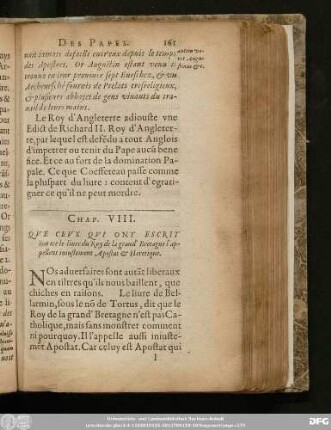 DES PAPES. 161
non iamais defailli entr'eux depuis le temps
des Apostres. Or Augustin estant venu
trouua en leur prouince sept Eueschez, & vn
Archeuesché fournis de Prelats tresreligieux,
& plusieurs abbayes de gens viuants du tra-
uail de leurs mains.
Le Roy d'Angleterre adiouste vne
Edict de Richard II. Roy d'Angleter-
re, par lequel est defēdu à tout Anglois
d'impetrer ou tenir du Pape aucū bene
fice. Et ce au fort de la domination Pa-
pale. Ce que Coeffeteau passe comme
la pluspart du liure: content d'egrati-
gner ce qu'il ne peut mordre.
CHAP. VIII.
QVE CEVX QVI ONT ESCRIT
contre le liure du Roy de la grand' Bretagne l'ap-
pellent iniustement Apostat & Heretique.
NOs aduersaires sont autāt liberaux
en tiltres qu'ils nous baillent, que
chiches en raisons. Le liure de Bel-
larmin, sous le nō de Tortus, dit que le
Roy de la grand' Bretagne n'est pas Ca-
tholique, mais sans monstrer comment
ni pourquoy. Il l'appelle aussi iniuste-
mēt Apostat. Car celuy est Apostat qui
I
DFG